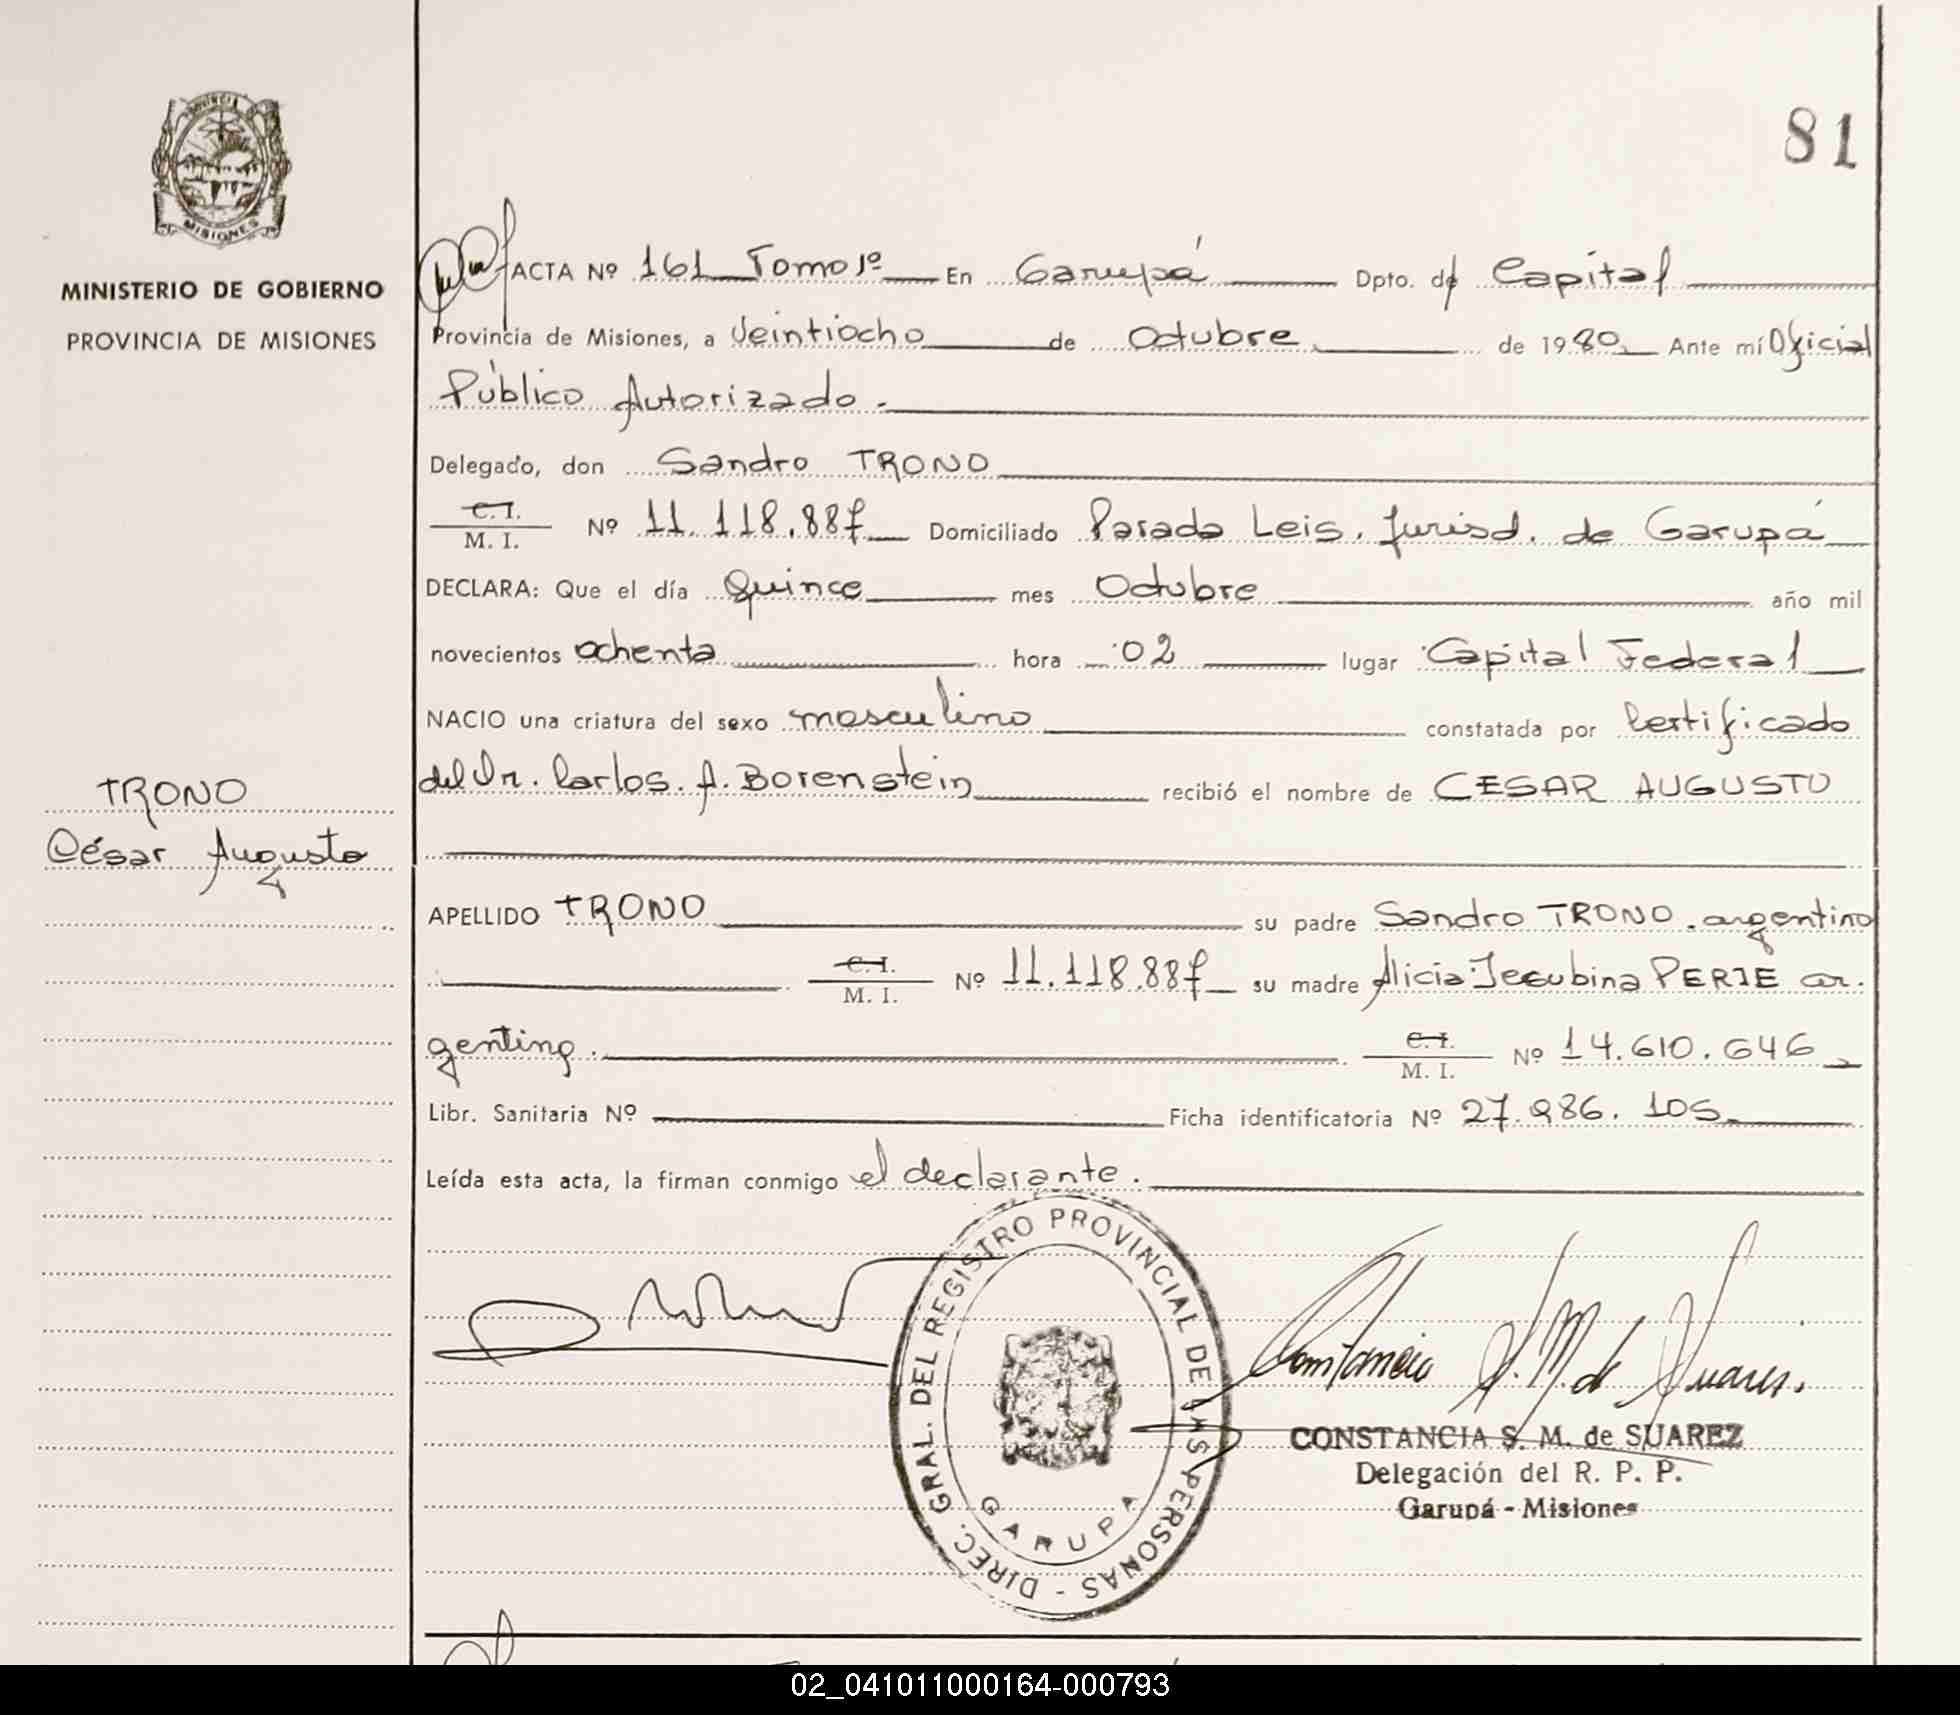 81
PROVINCIA
MISIONES
MINISTERIO DE GOBIERNO
PROVINCIA DE MISIONES
ACTA Nº 161 Tomo 1º En Garupá Dpto. de Capital
Provincia de Misiones, a Veintiocho de Octubre de 1980 Ante mí Oficial
Público Autorizado.
Delegado, don Sandro TRONO
C.I.
M. I. Nº 11.118.887 Domiciliado Parada Leis, Jurisd. de Garupá
DECLARA: Que el día quince mes Octubre año mil
novecientos ochenta hora 02 lugar Capital Federal
NACIO una criatura del sexo masculino constatada por Certificado
del Dr. Carlos. A. Borenstein recibió el nombre de CESAR AUGUSTO
TRONO
César Augusto
APELLIDO TRONO su padre Sandro TRONO. argentino
C.I.
M. I. Nº 11.118.887 su madre Alicia PERIE ar.
gentina. C.I.
M. I. Nº 14.610.646
Libr. Sanitaria Nº Ficha identificatoria Nº 27.986.105
Leída esta acta, la firman conmigo el declarante.
DIREC. GRAL. DEL REGISTRO PROVINCIAL DE LAS PERSONAS -
GARUPA
Constancia S. M. de Suarez.
CONSTANCIA S. M. de SUAREZ
Delegación del R. P. P.
Garupá - Misiones
02_041011000164-000793